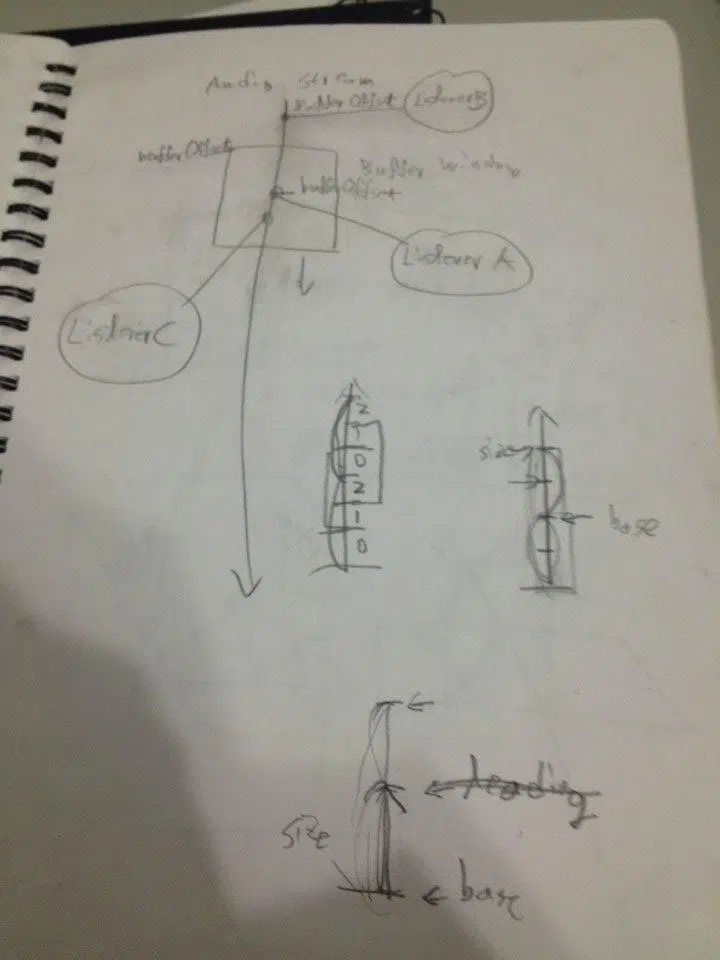 Audio Stream
bufferOffset
ListenerB
bufferOffset
Buffer window
bufferOffset
Listener A
ListenerC
2
1
0
2
1
0
size
base
leading
size
base